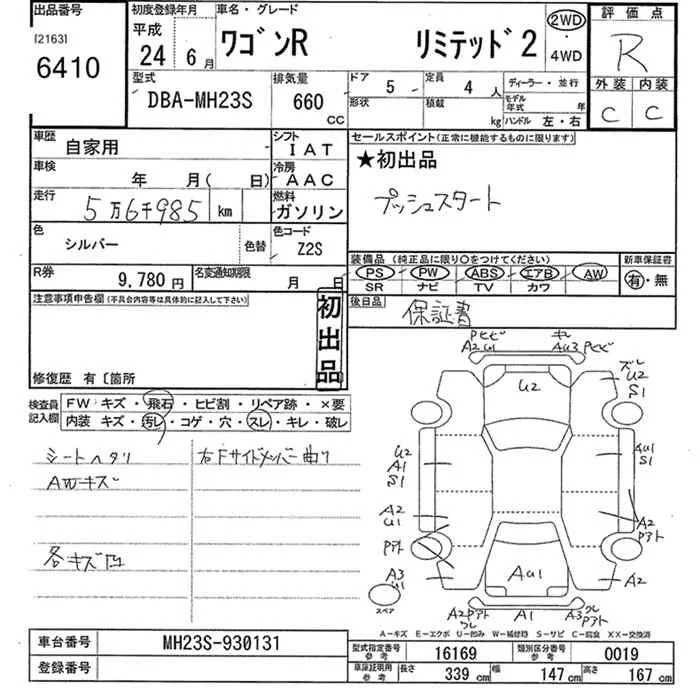 出品番号
[2163]
6410
初度登録年月
平成
24年 6月
車名・グレード
ワゴンR リミテッド2
2WD
・
4WD
評価点
R
外装 内装
C C
型式
DBA-MH23S
排気量
660
CC
ドア 5
定員 4 人
ディーラー・並行
形状
積載
kg
モデル年式 年
ハンドル 左・右
車歴
自家用
シフト
IAT
車検
年 月( 日)
冷房
AAC
走行
5万6千985 km
燃料
ガソリン
色
シルバー
色替
色コード
Z2S
R券
9,780円
名変通知期限
月 日
セールスポイント(正常に機能するものに限ります)
★初出品
プッシュスタート
装備品(純正品に限り○をつけてください)
PS PW ABS エアB AW
SR ナビ TV カワ
新車保証書
有・無
後日品
保証書
注意事項申告欄(不具合内容等は具体的に記入して下さい)
初出品
修復歴 有〔箇所
検査員
記入欄
FW キズ・飛石・ヒビ割・リペア跡・×要
内装 キズ・汚レ・コゲ・穴・スレ・キレ・破レ
シートヘタリ
右Fサイドメンバー曲り
AWキズ
各キズ凹
PヒビA2 U1
キレ
AU3 Pヒビ
U2
ズレ
U2
S1
U2
A1
S1
AU1
S1
A2
U1
A2
Pアト
Pアト
A3
U1
AU1
A2
スペア
A2 Pアト
ワレ
A1
A3
Pアト
A-キズ E-エクボ U-凹み W-補修跡 S-サビ C-腐食 XX-交換済
車台番号
MH23S-930131
登録番号
型式指定番号
参考
16169
類別区分番号
参考
0019
車庫証明用
参考
長さ 339 cm
幅 147 cm
高さ 167 cm